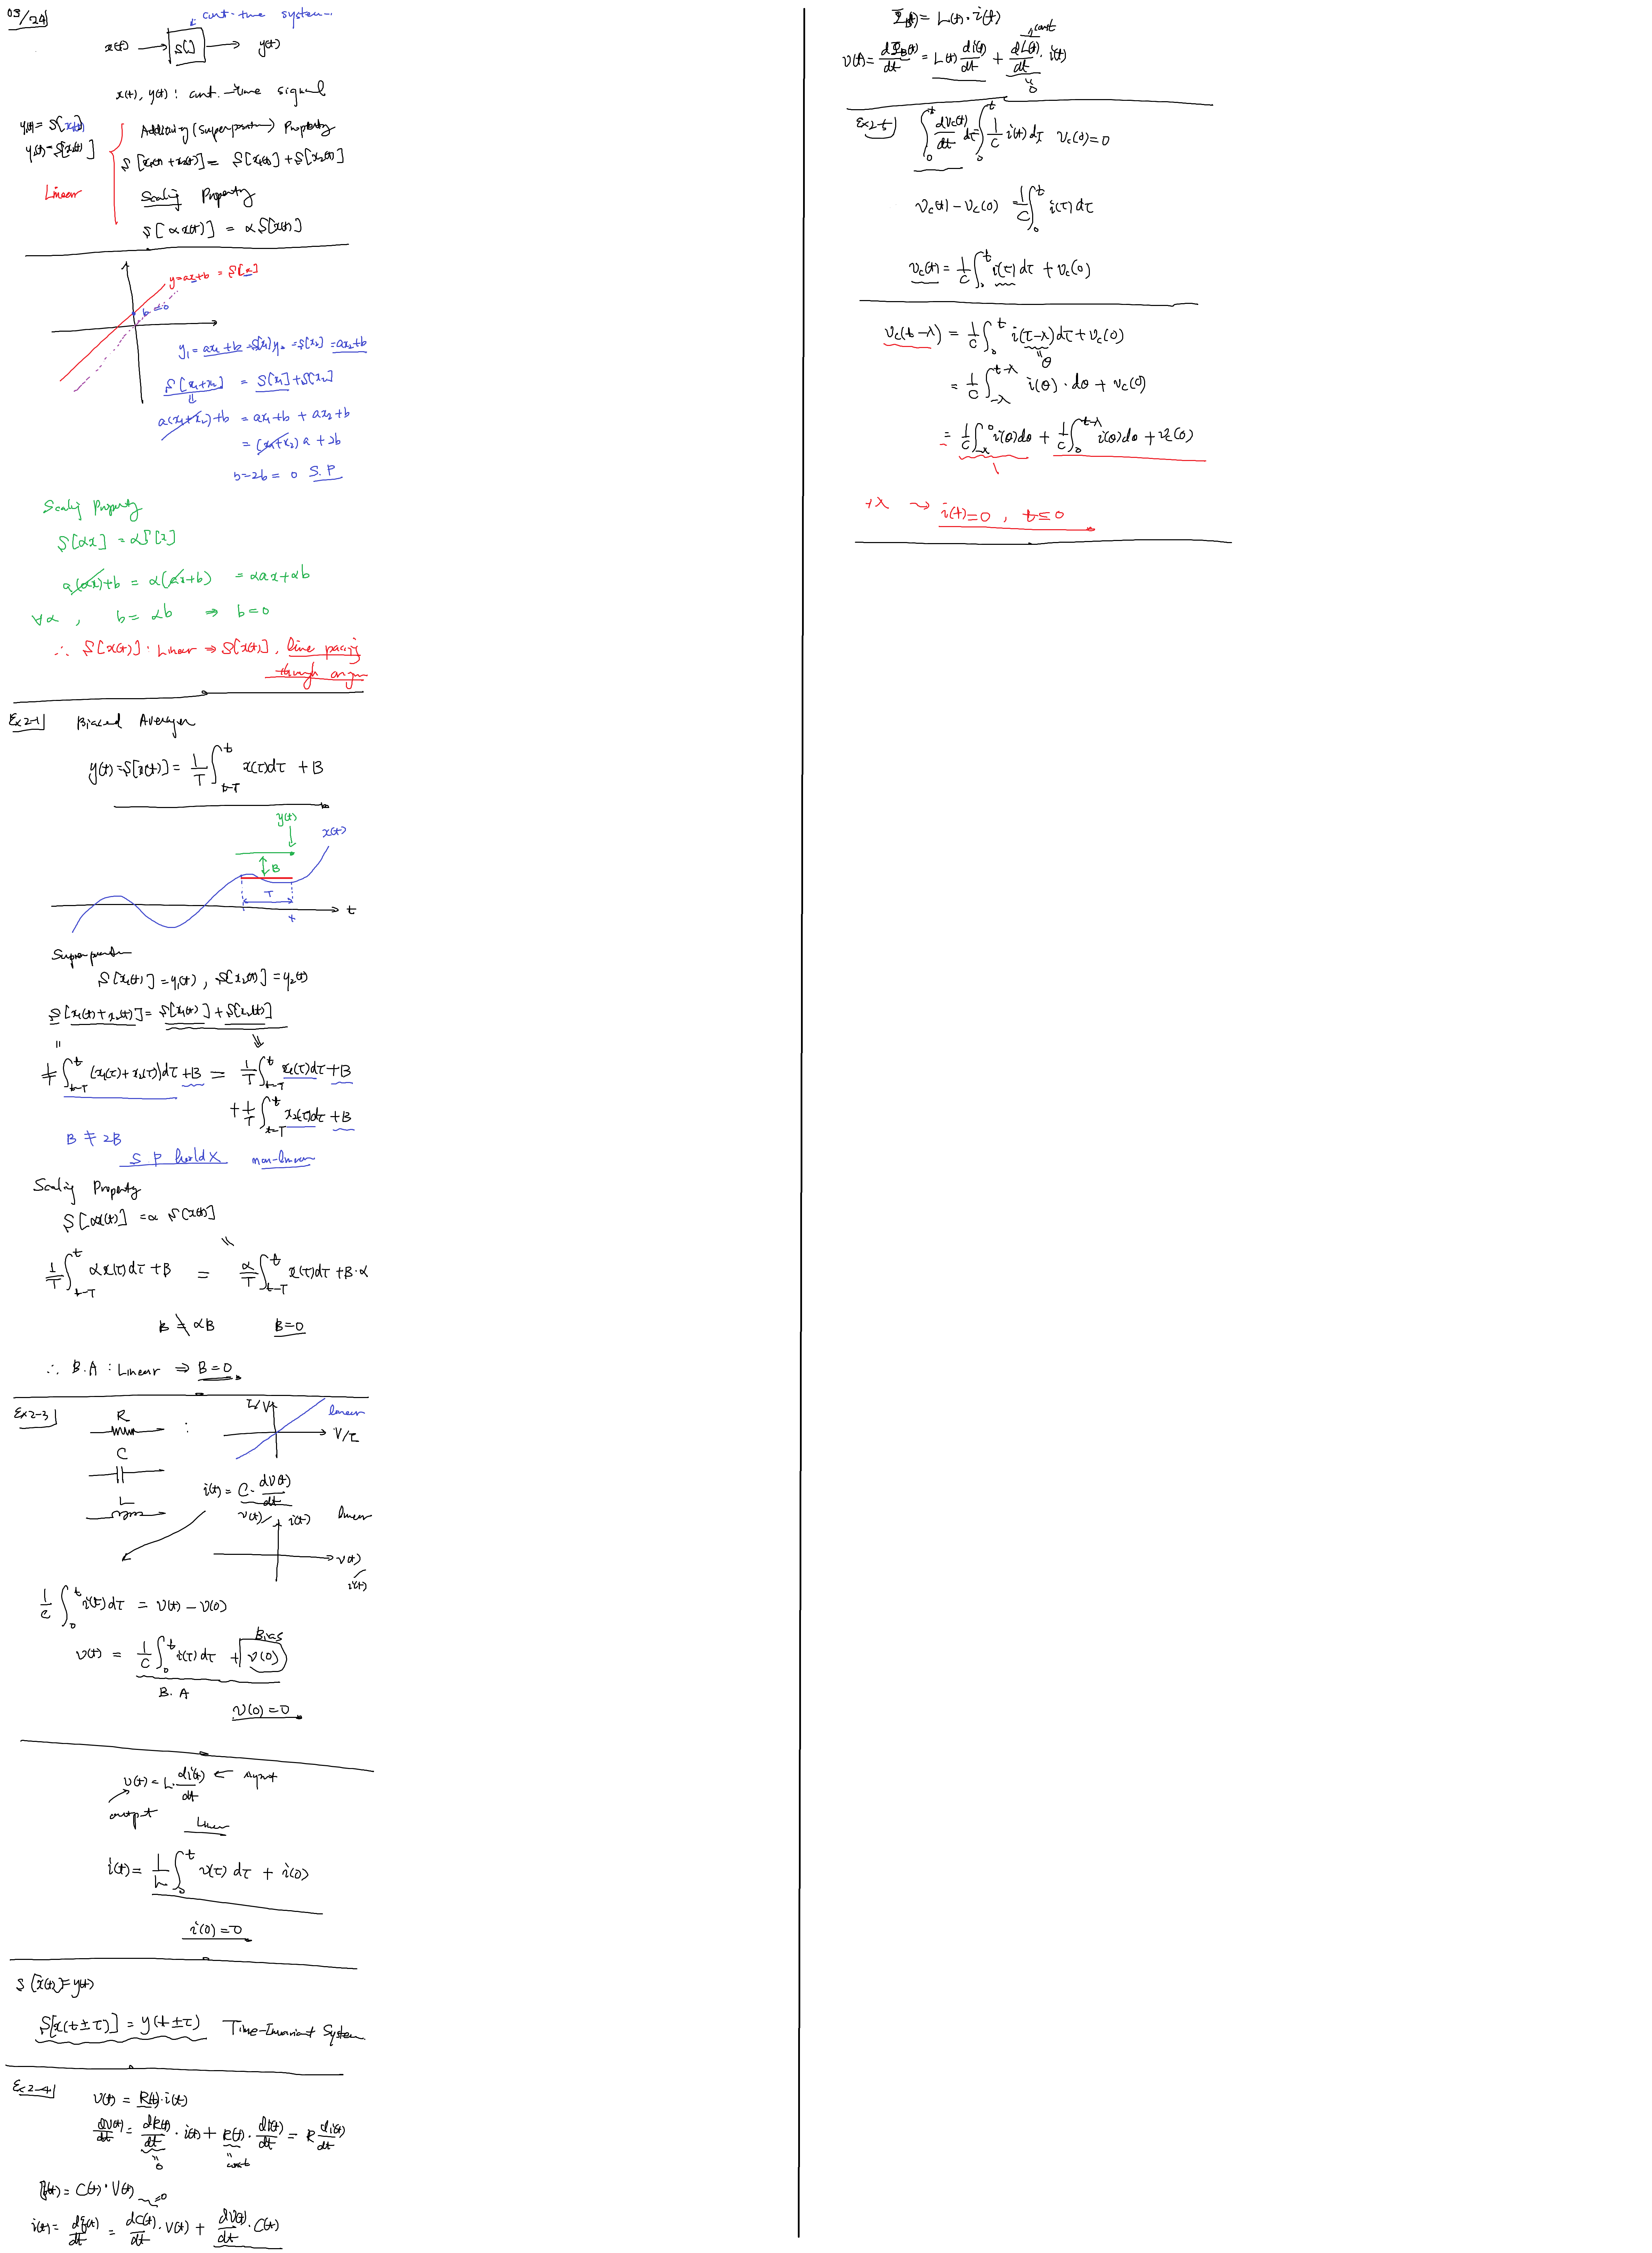 03/24
cont-time system
x(t) → S[ ] → y(t)
x(t), y(t) : cont.-time signal
y₁(t) = S[x₁(t)]
y₂(t) = S[x₂(t)]
Linear
Additivity (Superposition) Property
S[x₁(t) + x₂(t)] = S[x₁(t)] + S[x₂(t)]
Scaling Property
S[αx(t)] = αS[x(t)]
y = ax+b = S[x]
y₁ = ax₁ + b = S[x₁] y₂ = S[x₂] = ax₂+b
S[x₁+x₂] = S[x₁] + S[x₂]
a(x₁+x₂)+b = ax₁+b + ax₂+b
= (x₁+x₂)a + 2b
b=2b = 0 S.P
Scaling Property
S[αx] = αS[x]
a(αx)+b = α(ax+b) = αax+αb
∀α, b = αb ⇒ b=0
∴ S[x(t)] : Linear ⇒ S[x(t)], line passing
through origin
Ex2-1 Biased Averager
y(t) = S[x(t)] = 1/T ∫_{t-T}^{t} x(τ)dτ + B
y(t)
x(t)
B
T
t
t
Superposition
S[x₁(t)] = y₁(t), S[x₂(t)] = y₂(t)
S[x₁(t)+x₂(t)] = S[x₁(t)] + S[x₂(t)]
1/T ∫_{t-T}^{t} (x₁(τ)+x₂(τ))dτ + B = 1/T ∫_{t-T}^{t} x₁(τ)dτ + B
+ 1/T ∫_{t-T}^{t} x₂(τ)dτ + B
B ≠ 2B
S P hold X non-linear
Scaling Property
S[αx(t)] = α S[x(t)]
1/T ∫_{t-T}^{t} αx(τ)dτ + B = α/T ∫_{t-T}^{t} x(τ)dτ + B·α
B ≠ αB B=0
∴ B.A : Linear ⇒ B=0
Ex2-3
R :
C
L
I/V
linear
V/I
i(t) = C · dv(t)/dt
v(t)/ i(t) linear
v(t)
i(t)
1/C ∫_{0}^{t} i(τ)dτ = v(t) − v(0)
Bias
v(t) = 1/C ∫_{0}^{t} i(τ)dτ + v(0)
B. A
v(0) = 0
v(t) = L · di(t)/dt ← input
output
Linear
i(t) = 1/L ∫_{0}^{t} v(τ) dτ + i(0)
i(0) = 0
S[x(t)] = y(t)
S[x(t±τ)] = y(t±τ) Time-Invariant System
Ex2-4
v(t) = R(t)·i(t)
dv(t)/dt = dR(t)/dt · i(t) + R(t) · di(t)/dt = R di(t)/dt
0 const
q(t) = C(t)·V(t)
=0
i(t) = dq(t)/dt = dC(t)/dt · V(t) + dV(t)/dt · C(t)
Φ_B(t) = L(t)·i(t)
const
v(t) = dΦ_B(t)/dt = L(t) di(t)/dt + dL(t)/dt · i(t)
0
Ex2-5 ∫_{0}^{t} dv_c(t)/dt dτ = ∫_{0}^{t} 1/C i(t) dτ v_c(0)=0
v_c(t) − v_c(0) = 1/C ∫_{0}^{t} i(τ)dτ
v_c(t) = 1/C ∫_{0}^{t} i(τ) dτ + v_c(0)
v_c(t−λ) = 1/C ∫_{0}^{t} i(τ−λ)dτ + v_c(0)
θ
= 1/C ∫_{-λ}^{t-λ} i(θ)·dθ + v_c(0)
= 1/C ∫_{-λ}^{0} i(θ)dθ + 1/C ∫_{0}^{t-λ} i(θ)dθ + v_c(0)
+λ → i(t)=0, t≤0